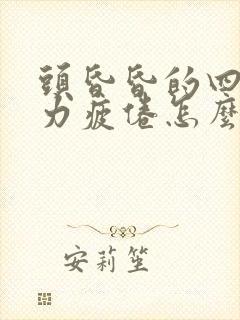 頭昏昏的四
力疲倦怎麼
安莉笙